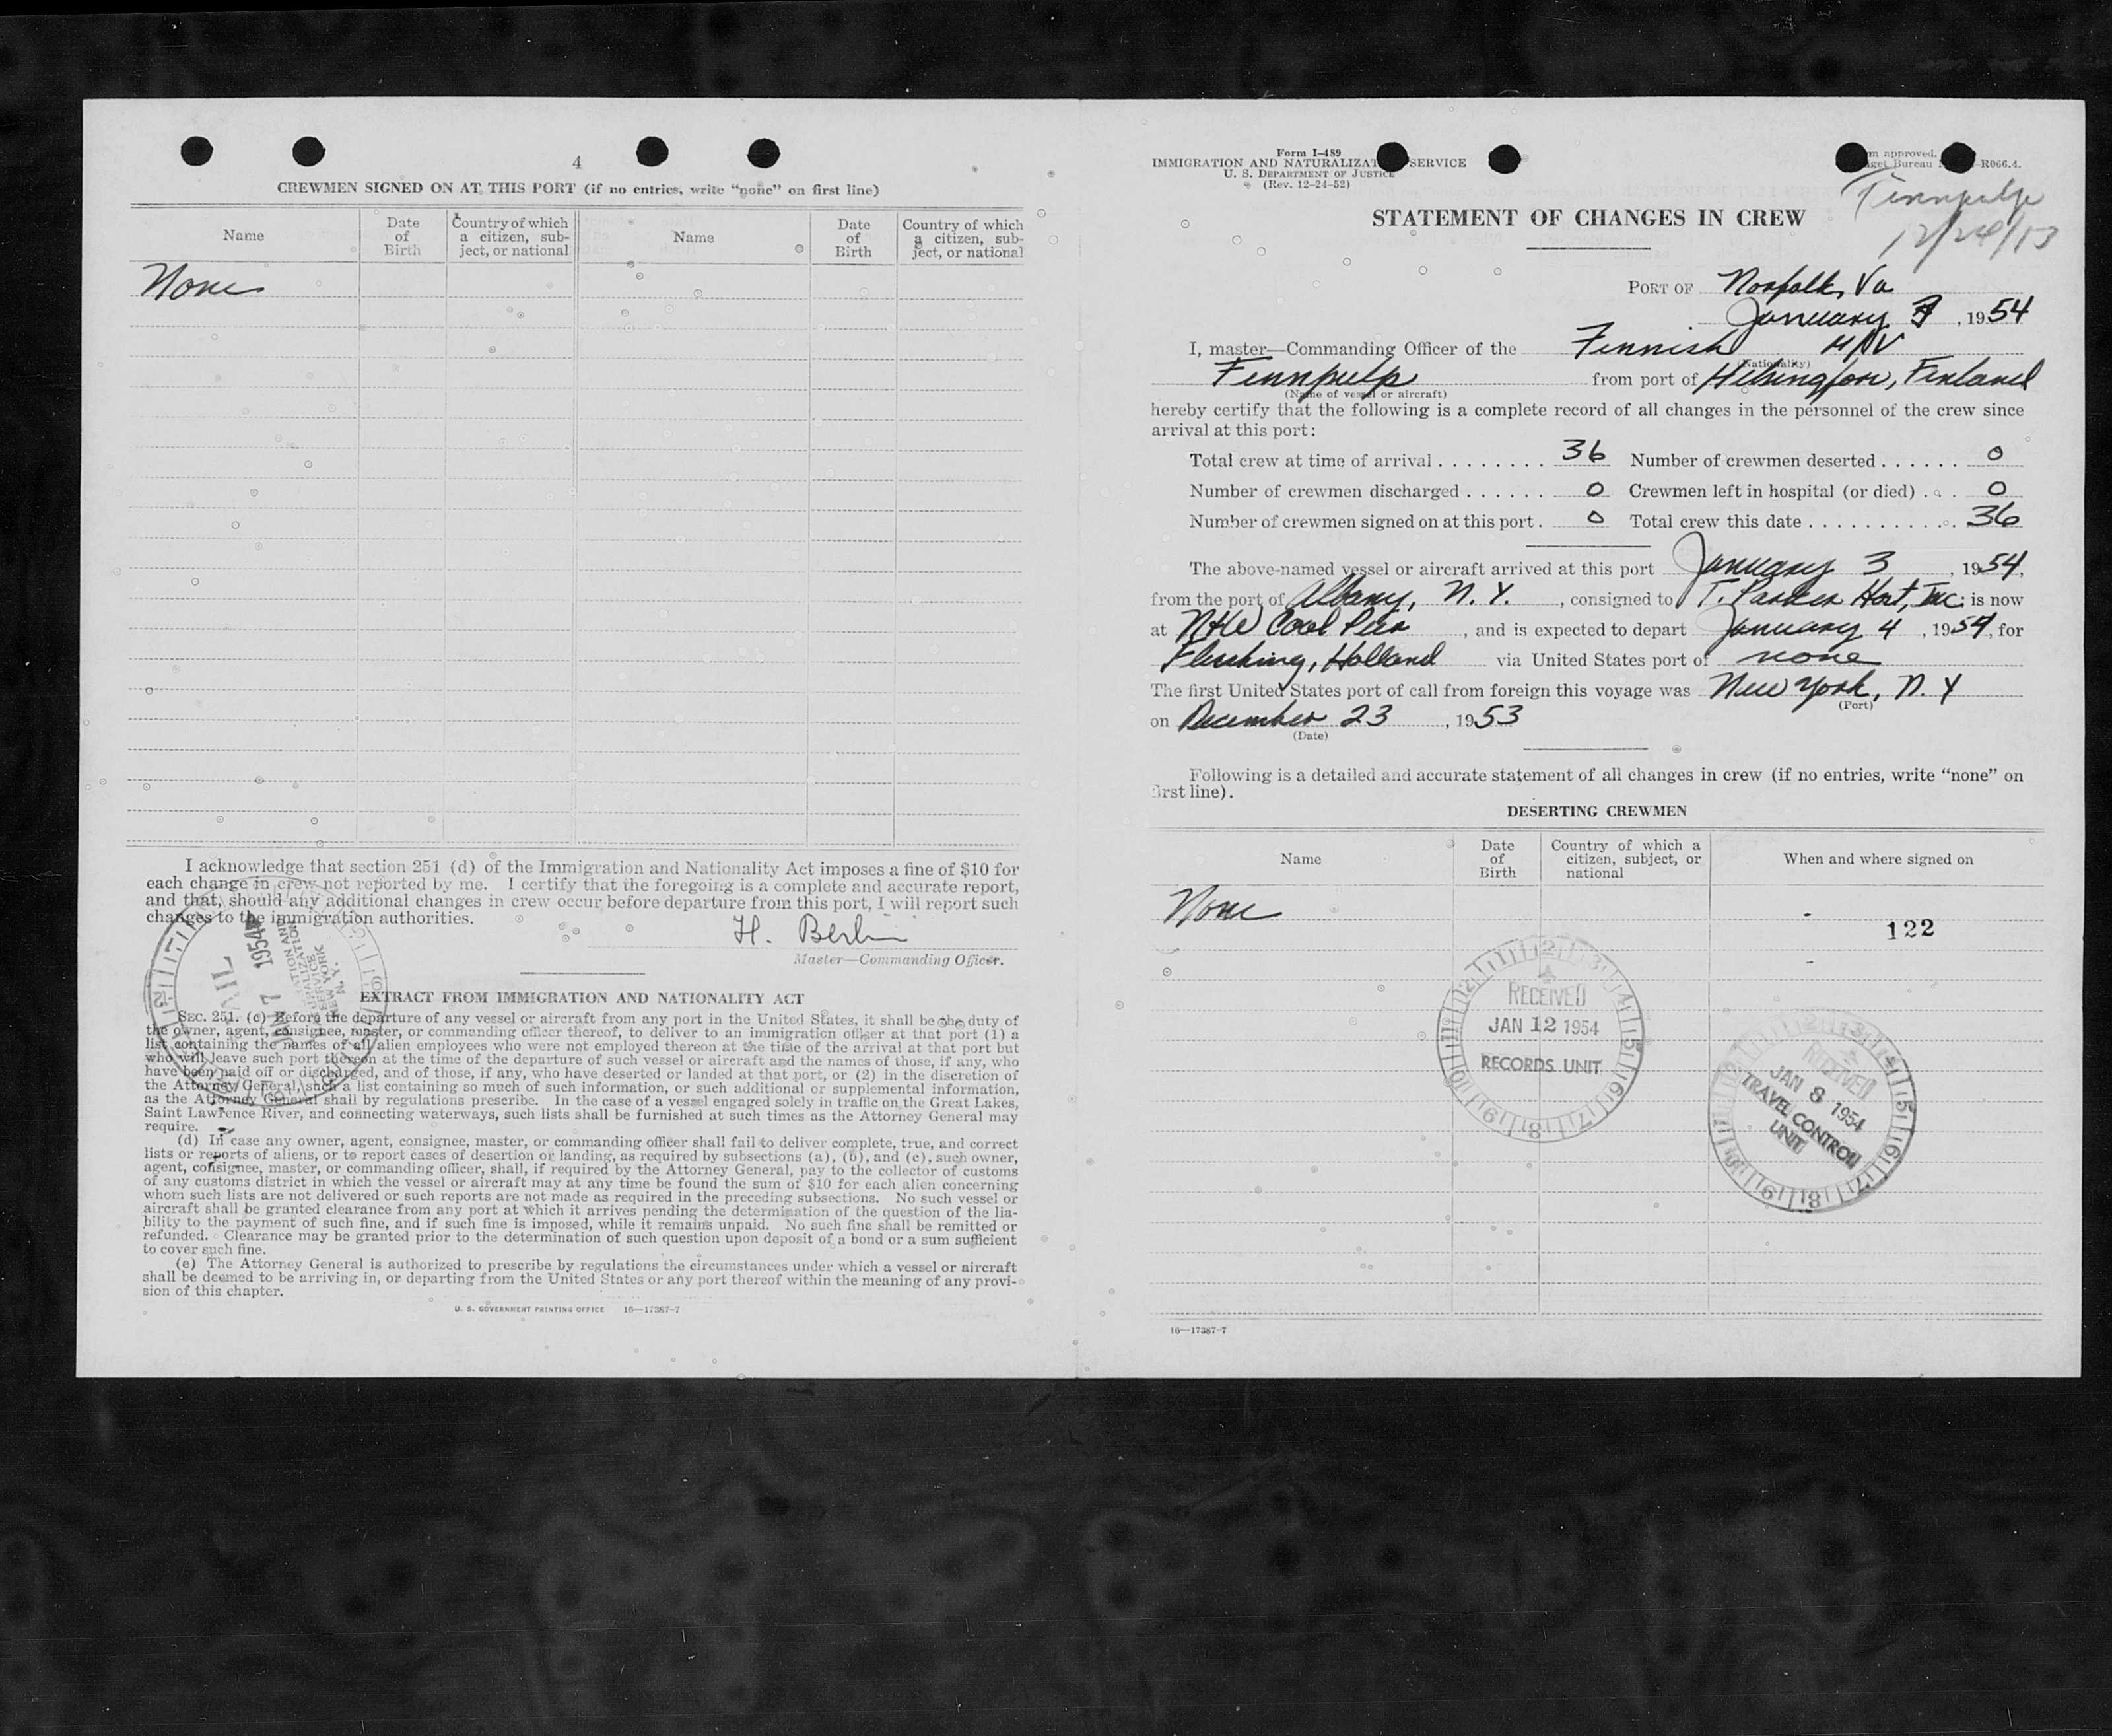 4
CREWMEN SIGNED ON AT THIS PORT (if no entries, write “none” on first line)
Name
Date of Birth
Country of which a citizen, subject, or national
Name
Date of Birth
Country of which a citizen, subject, or national
None
I acknowledge that section 251 (d) of the Immigration and Nationality Act imposes a fine of $10 for
each change in crew not reported by me. I certify that the foregoing is a complete and accurate report,
and that, should any additional changes in crew occur before departure from this port, I will report such
changes to the immigration authorities.
H. Berlin
Master—Commanding Officer.
EXTRACT FROM IMMIGRATION AND NATIONALITY ACT
SEC. 251. (c) Before the departure of any vessel or aircraft from any port in the United States, it shall be the duty of
the owner, agent, consignee, master, or commanding officer thereof, to deliver to an immigration officer at that port (1) a
list containing the names of all alien employees who were not employed thereon at the time of the arrival at that port but
who will leave such port thereon at the time of the departure of such vessel or aircraft and the names of those, if any, who
have been paid off or discharged, and of those, if any, who have deserted or landed at that port, or (2) in the discretion of
the Attorney General, such a list containing so much of such information, or such additional or supplemental information,
as the Attorney General shall by regulations prescribe. In the case of a vessel engaged solely in traffic on the Great Lakes,
Saint Lawrence River, and connecting waterways, such lists shall be furnished at such times as the Attorney General may
require.
(d) In case any owner, agent, consignee, master, or commanding officer shall fail to deliver complete, true, and correct
lists or reports of aliens, or to report cases of desertion or landing, as required by subsections (a), (b), and (c), such owner,
agent, consignee, master, or commanding officer, shall, if required by the Attorney General, pay to the collector of customs
of any customs district in which the vessel or aircraft may at any time be found the sum of $10 for each alien concerning
whom such lists are not delivered or such reports are not made as required in the preceding subsections. No such vessel or
aircraft shall be granted clearance from any port at which it arrives pending the determination of the question of the lia-
bility to the payment of such fine, and if such fine is imposed, while it remains unpaid. No such fine shall be remitted or
refunded. Clearance may be granted prior to the determination of such question upon deposit of a bond or a sum sufficient
to cover such fine.
(e) The Attorney General is authorized to prescribe by regulations the circumstances under which a vessel or aircraft
shall be deemed to be arriving in, or departing from the United States or any port thereof within the meaning of any provi-
sion of this chapter.
U. S. GOVERNMENT PRINTING OFFICE 16—17387-7
Form I-489
IMMIGRATION AND NATURALIZAT SERVICE
U. S. DEPARTMENT OF JUSTICE
(Rev. 12-24-52)
m approved.
get Bureau R066.4.
Finnpulp
STATEMENT OF CHANGES IN CREW
PORT OF Norfolk, Va
January , 1954
I, master—Commanding Officer of the Finnish M/V
(Nationality)
Finnpulp from port of Helsingfors, Finland
(Name of vessel or aircraft)
hereby certify that the following is a complete record of all changes in the personnel of the crew since
arrival at this port:
Total crew at time of arrival ........ 36 Number of crewmen deserted ...... 0
Number of crewmen discharged ...... 0 Crewmen left in hospital (or died) ... 0
Number of crewmen signed on at this port . 0 Total crew this date ........... 36
The above-named vessel or aircraft arrived at this port January 3, 1954,
from the port of Albany, N. Y., consigned to T. Parker Host, Inc; is now
at N&W Coal Pier, and is expected to depart January 4, 1954, for
Flushing, Holland via United States port of none
The first United States port of call from foreign this voyage was New York, N. Y
(Port)
on December 23, 1953
(Date)
Following is a detailed and accurate statement of all changes in crew (if no entries, write “none” on
first line).
DESERTING CREWMEN
Name
Date of Birth
Country of which a citizen, subject, or national
When and where signed on
None
122
RECEIVED
JAN 12 1954
RECORDS UNIT
RECEIVED
JAN 8 1954
TRAVEL CONTROL
UNIT
16—17387-7